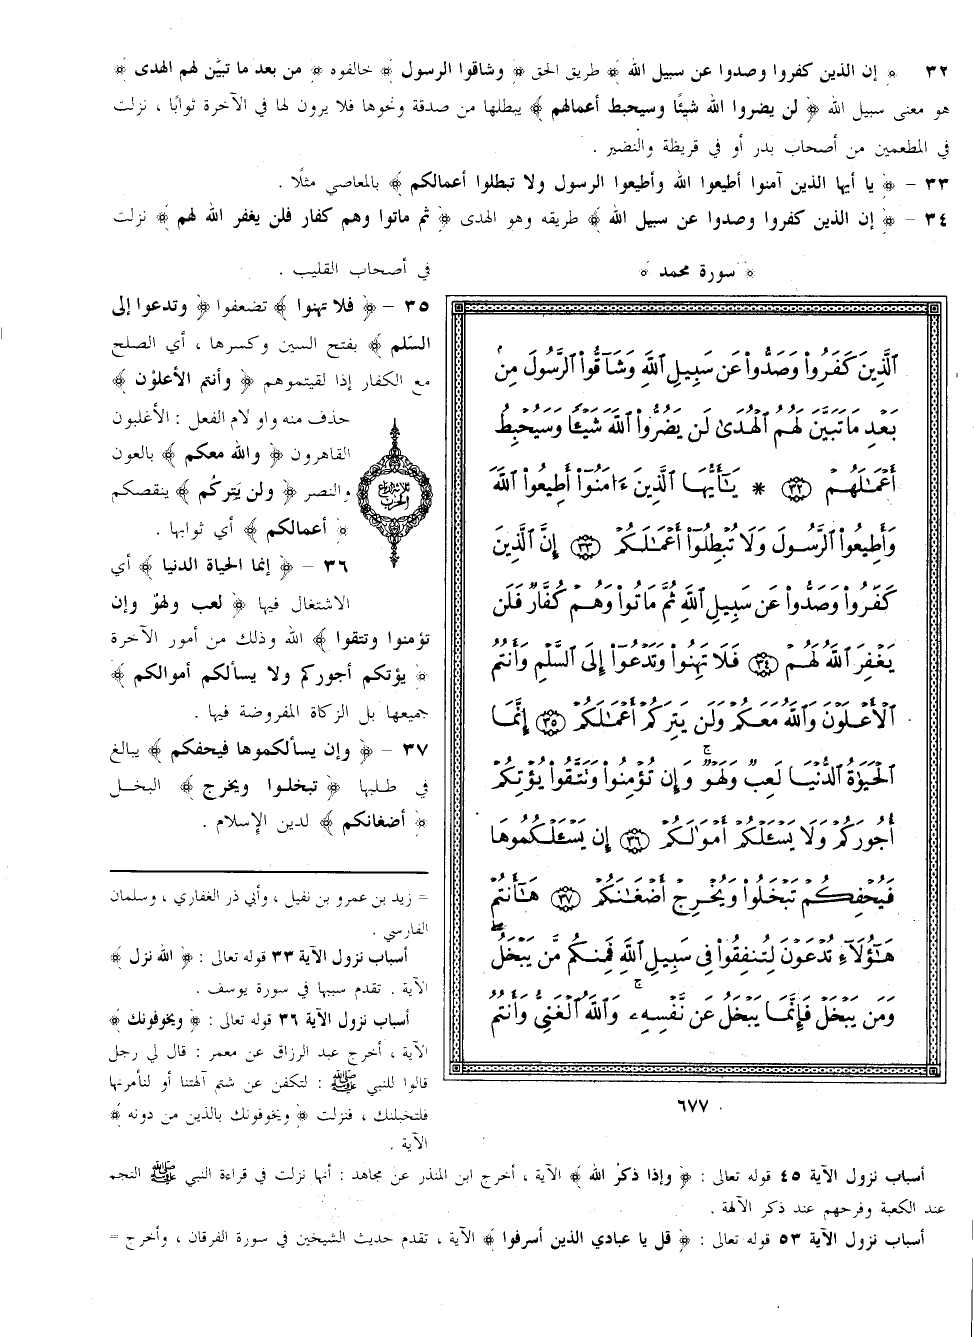 ٣٢ ﴿ إن الذين كفروا وصدوا عن سبيل الله ﴾ طريق الحق ﴿ وشاقوا الرسول ﴾ خالفوه ﴿ من بعد ما تبيَّن لهم الهدى ﴾
هو معنى سبيل الله ﴿ لن يضروا الله شيئًا وسيحبط أعمالهم ﴾ يبطلها من صدقة ونحوها فلا يرون لها في الآخرة ثوابًا ، نزلت
في المطعمين من أصحاب بدر أو في قريظة والنضير .
٣٣ – ﴿ يا أيها الذين آمنوا أطيعوا الله وأطيعوا الرسول ولا تبطلوا أعمالكم ﴾ بالمعاصي مثلًا .
٣٤ – ﴿ إن الذين كفروا وصدوا عن سبيل الله ﴾ طريقه وهو الهدى ﴿ ثم ماتوا وهم كفار فلن يغفر الله لهم ﴾ نزلت
في أصحاب القليب .
﴿ سورة محمد ﴾
٣٥ – ﴿ فلا تهنوا ﴾ تضعفوا ﴿ وتدعوا إلى
السَّلم ﴾ بفتح السين وكسرها ، أي الصلح
مع الكفار إذا لقيتموهم ﴿ وأنتم الأعلوْن ﴾
حذف منه واو لام الفعل : الأغلبون
القاهرون ﴿ والله معكم ﴾ بالعون
والنصر ﴿ ولن يَتِركُم ﴾ ينقصكم
﴿ أعمالكم ﴾ أي ثوابها .
٣٦ – ﴿ إنما الحياة الدنيا ﴾ أي
الاشتغال فيها ﴿ لعب ولهوٌ وإن
تؤمنوا وتتقوا ﴾ الله وذلك من أمور الآخرة
﴿ يؤتكم أجوركم ولا يسألكم أموالكم ﴾
جميعها بل الزكاة المفروضة فيها .
٣٧ – ﴿ وإن يسألكموها فيحفكم ﴾ يبالغ
في طلبها ﴿ تبخلوا ويخرج ﴾ البخل
﴿ أضغانكم ﴾ لدين الإسلام .
ثلاثة أرباع
الحزب
ٱلَّذِينَ كَفَرُوا۟ وَصَدُّوا۟ عَن سَبِيلِ ٱللَّهِ وَشَآقُّوا۟ ٱلرَّسُولَ مِنۢ
بَعْدِ مَا تَبَيَّنَ لَهُمُ ٱلْهُدَىٰ لَن يَضُرُّوا۟ ٱللَّهَ شَيْـًٔا وَسَيُحْبِطُ
أَعْمَـٰلَهُمْ ٣٢ * يَـٰٓأَيُّهَا ٱلَّذِينَ ءَامَنُوٓا۟ أَطِيعُوا۟ ٱللَّهَ
وَأَطِيعُوا۟ ٱلرَّسُولَ وَلَا تُبْطِلُوٓا۟ أَعْمَـٰلَكُمْ ٣٣ إِنَّ ٱلَّذِينَ
كَفَرُوا۟ وَصَدُّوا۟ عَن سَبِيلِ ٱللَّهِ ثُمَّ مَاتُوا۟ وَهُمْ كُفَّارٌ فَلَن
يَغْفِرَ ٱللَّهُ لَهُمْ ٣٤ فَلَا تَهِنُوا۟ وَتَدْعُوٓا۟ إِلَى ٱلسَّلْمِ وَأَنتُمُ
ٱلْأَعْلَوْنَ وَٱللَّهُ مَعَكُمْ وَلَن يَتِرَكُمْ أَعْمَـٰلَكُمْ ٣٥ إِنَّمَا
ٱلْحَيَوٰةُ ٱلدُّنْيَا لَعِبٌ وَلَهْوٌ ۚ وَإِن تُؤْمِنُوا۟ وَتَتَّقُوا۟ يُؤْتِكُمْ
أُجُورَكُمْ وَلَا يَسْـَٔلْكُمْ أَمْوَٰلَكُمْ ٣٦ إِن يَسْـَٔلْكُمُوهَا
فَيُحْفِكُمْ تَبْخَلُوا۟ وَيُخْرِجْ أَضْغَـٰنَكُمْ ٣٧ هَـٰٓأَنتُمْ
هَـٰٓؤُلَآءِ تُدْعَوْنَ لِتُنفِقُوا۟ فِى سَبِيلِ ٱللَّهِ فَمِنكُم مَّن يَبْخَلُ ۖ
وَمَن يَبْخَلْ فَإِنَّمَا يَبْخَلُ عَن نَّفْسِهِۦ ۚ وَٱللَّهُ ٱلْغَنِىُّ وَأَنتُمُ
٦٧٧
= زيد بن عمرو بن نفيل ، وأبي ذر الغفاري ، وسلمان
الفارسي .
أسباب نزول الآية ٣٣ قوله تعالى : ﴿ الله نزل ﴾
الآية . تقدم سببها في سورة يوسف .
أسباب نزول الآية ٣٦ قوله تعالى : ﴿ ويخوفونك ﴾
الآية ، أخرج عبد الرزاق عن معمر : قال لي رجل
قالوا للنبي ﷺ : لتكفن عن شتم آلهتنا أو لنأمرنها
فلتخبلنك ، فنزلت ﴿ ويخوفونك بالذين من دونه ﴾
الآية .
أسباب نزول الآية ٤٥ قوله تعالى : ﴿ وإذا ذكر الله ﴾ الآية ، أخرج ابن المنذر عن مجاهد : أنها نزلت في قراءة النبي ﷺ النجم
عند الكعبة وفرحهم عند ذكر الآلهة .
أسباب نزول الآية ٥٣ قوله تعالى : ﴿ قل يا عبادي الذين أسرفوا ﴾ الآية ، تقدم حديث الشيخين في سورة الفرقان ، وأخرج =